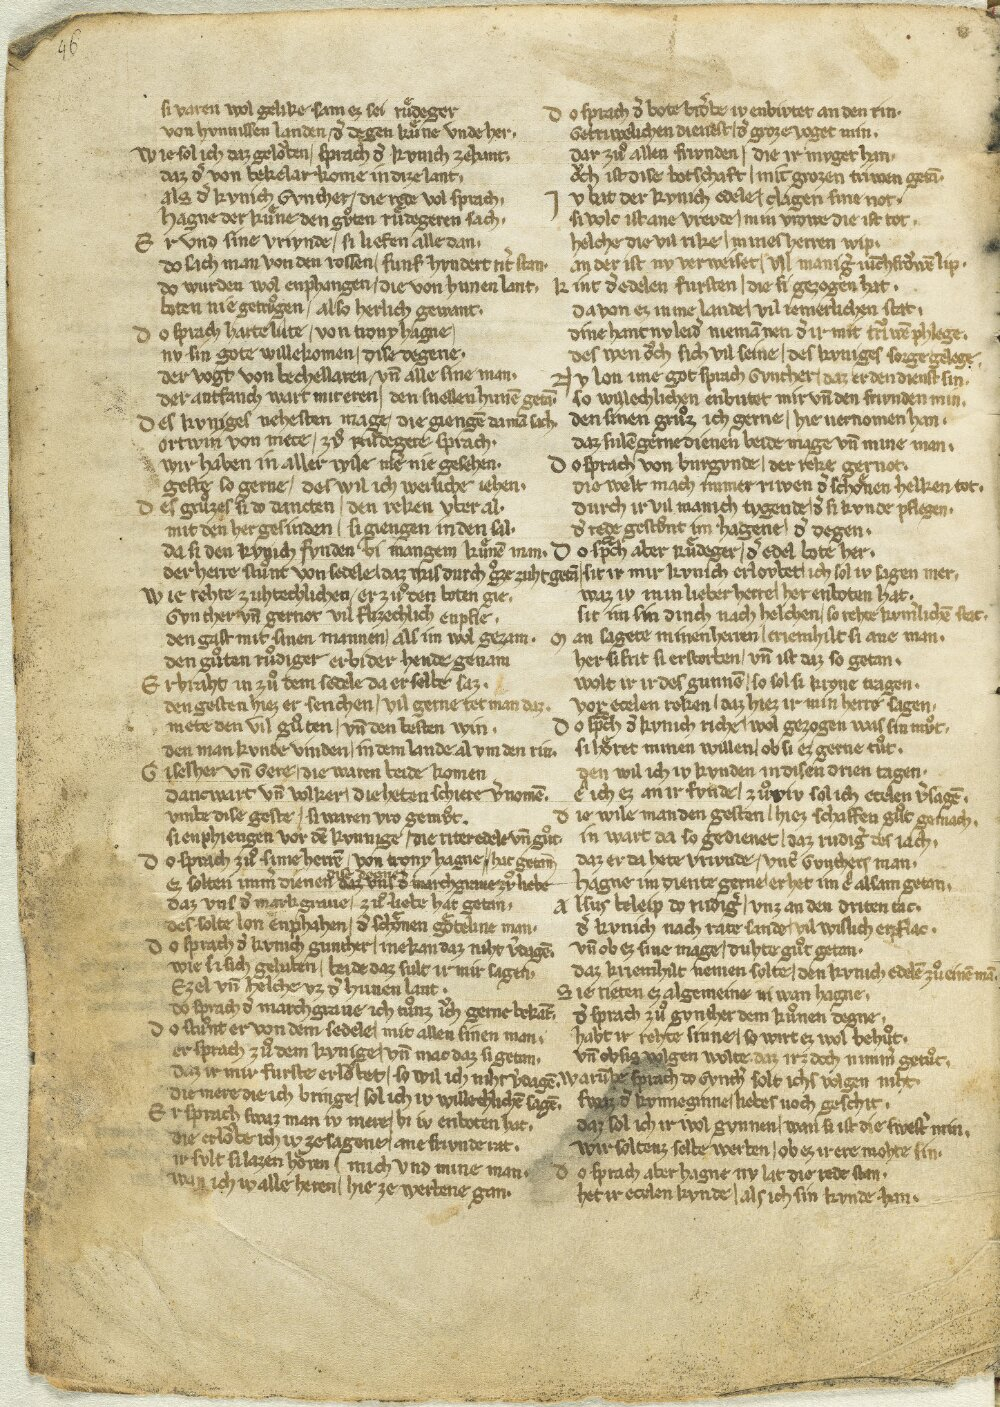 46
si varen wol gelike sam ez sei růdeger
von hvnnissen landen / d̉ degen kůne vnde her.
Wie sol ich daz gelǒben / sprach d̉ kvnich zehant.
daz d̉ von bekelar kome in dize lant.
als d̉ kvnich Gvnther / die rede vol sprach.
hagne der kůne den gůten rudegeren sach.
Er vnd sine vriynde / si liefen alle dan.
do sach man von den rossen / funf hvndert rit̉ stan.
do wurden wol enphangen / die von hunen lant.
boten nie getrůgen / also herlich gewant.
Do sprach harte lůte / von trony hagne /
nv sin gote willekomen / dise degene.
der vogt von bechellaren / vn̄ alle sine man.
der antfanch wart mit eren / den snellen hunē getā.
Des kvniges nehesten mage / die giengē da mā sach.
ortwin von meze / zv̊ rudegere sprach.
wir haben in aller wile nie gesehen.
geste so gerne / des wil ich werliche iehen.
Des grůzes si do dancten / den reken vber al.
mit den her gesinden / si giengen in den sal.
da si den kvnich fvnden / bi mangem kůnē man.
der herre stůnt von sedele / daz was durch groze zuht getā
Wie rehte zuhtechlichen / er zů den boten gie.
Gvnther vn̄ gernot vil flizechlich enpfie.
den gast mit sinen mannen / als im wol gezam.
den gůten růdiger er bi der hende genam
Er braht in zů dem sedele da er selbe saz.
den gesten hiez er schenchen / vil gerne tet man daz.
mete den vil gůten / vn̄ den besten win.
den man kvnde vinden / in dem lande al vm den rin.
Giselher vn̄ Gere / die waren beide komen
dancwart vn̄ volker / die heten schiere v̉nomē.
vmbe dise geste / si waren vro gemůt.
si enphiengen vor dē kvnige / die riter edele vn̄ gůt.
Do sprach zů sime herrē / von trony hagne / hat getan
ez solten imm̉ dienen dise degne daz vns d̉ marchgraue zv̊ liebe
daz vns d̉ markgraue / zů liebe hat getan.
des solte lon enphahen / d̉ schǒnen gǒteline man.
Do sprach d̉ kvnich gunther / ine kan daz niht v̉dagē.
wie si sich gehaben / beide daz sult ir mir sagen.
Ezel vn̄ helche vz d̉ hunen lant.
do sprach d̉ marchgraue ich tůnz ůch gerne bekāt.
Do stůnt er von dem sedele / mit allen sinen man.
er sprach zů dem kvnige / vn̄ mac daz si getan.
daz ir mir furste erlǒbet / so wil ich niht v̉dagē.
die mere die ich bringe / sol ich iv willechlichē sagē.
Er sprach swaz man iv mere / bi iv enboten hat.
die erlǒbe ich iv ze sagene / ane frivnde rat.
ir svlt si lazen hǒren / mich vnd mine man.
wan ich iv alle heren / hie ze werbene gan.
Do sprach d̉ bote bid̉be iv enbivtet an den rin.
Getriwelichen dienest / d̉ groze voget min.
dar zů allen frivnden / die ir mvget han.
ǒch ist dise botschaft / mit grozen triwen getā.
Iv bat der kvnich edele / clagen sine not.
si volc ist ane vrevde / min vrowe die ist tot.
helche die vil rike / mines herren wip.
an der ist nv verweiset / vil manig̉ iuchfrǒwē lip.
kint d̉ edelen fursten / die si gezogen hat.
da von ez in me lande / vil iemerlichen stat.
dine hant nv leid̉ niemā nen d̉ ir mit triwē phlege.
des wen ǒch sich vil seine / des kvniges sorge gelege.
Nv lon ime got sprach Gvnther / daz er den dienst sin.
so willechlichen enbivtet mir vn̄ den frivnden min.
den sinen grůz ich gerne / hie vernomen han.
daz sulē gerne dienen beide mage vn̄ mine man.
Do sprach von burgvnde / der reke gernot.
die welt mach immer riwen d̉ schǒnen helken tot.
durch ir vil manich tvgende / d̉ si kvnde pflegen.
d̉ rede gestůnt im hagene / d̉ degen.
Do sprach aber rudeger / d̉ edel bote her.
sit ir mir kvnich erlovbet / ich sol iv sagen mer.
waz iv min lieber herre / her enboten hat.
sit im sin dinch nach helchen / so rehte kvmliche stat.
Man sagete minen herren / criemhilt si ane man.
her sifrit si erstorben / vn̄ ist daz so getan.
wolt ir ir des gunnē / so sol si krone tragen.
vor ecelen reken / daz hiez ir min herre sagen.
Do sprach d̉ kvnich riche / wol gezogen was sin mǒt.
si hǒret minen willen / ob si ez gerne tůt.
den wil ich iv kvnden in disen drien tagen.
ē ich ez an ir fvnde / zů wiv sol ich ecelen v̉sagē.
Die wile man den gesten / hiez schaffen gůt gemach.
in wart da so gedienet / daz rudig̉ des iach.
daz er da hete vrivnde / vnd̉ Gvnthers man.
hagne im diente gerne / er het im ē alsam getan.
Alsus beleip do rudig̉ / vnz an den driten tac.
d̉ kvnich nach rate sande / vil wislich er pflac.
vn̄ ob ez sine mage / duhte gůt getan.
daz kriemhilt nemen solte / den kvnich edelē zů einē mā.
Sie rieten ez algemeine ni wan hagne.
d̉ sprach zů gvnther dem kůnen degne.
habt ir rehte sinne / so wirt ez wol behůt.
vn̄ ob sis volgen wolte / daz irz doch nimm̉ getůt.
Warvmbe sprach do Gvnth̉ solt ichs volgen niht.
swaz d̉ kvnneginne / liebes noch geschit.
daz sol ich ir wol gvnnen / wan si ist die swest̉ min.
wir soltenz selbe werben / ob ez ir ere mohte sin.
Do sprach aber hagne nv lat die rede stan.
het ir ecelen kvnde / als ich sin kvnde han.